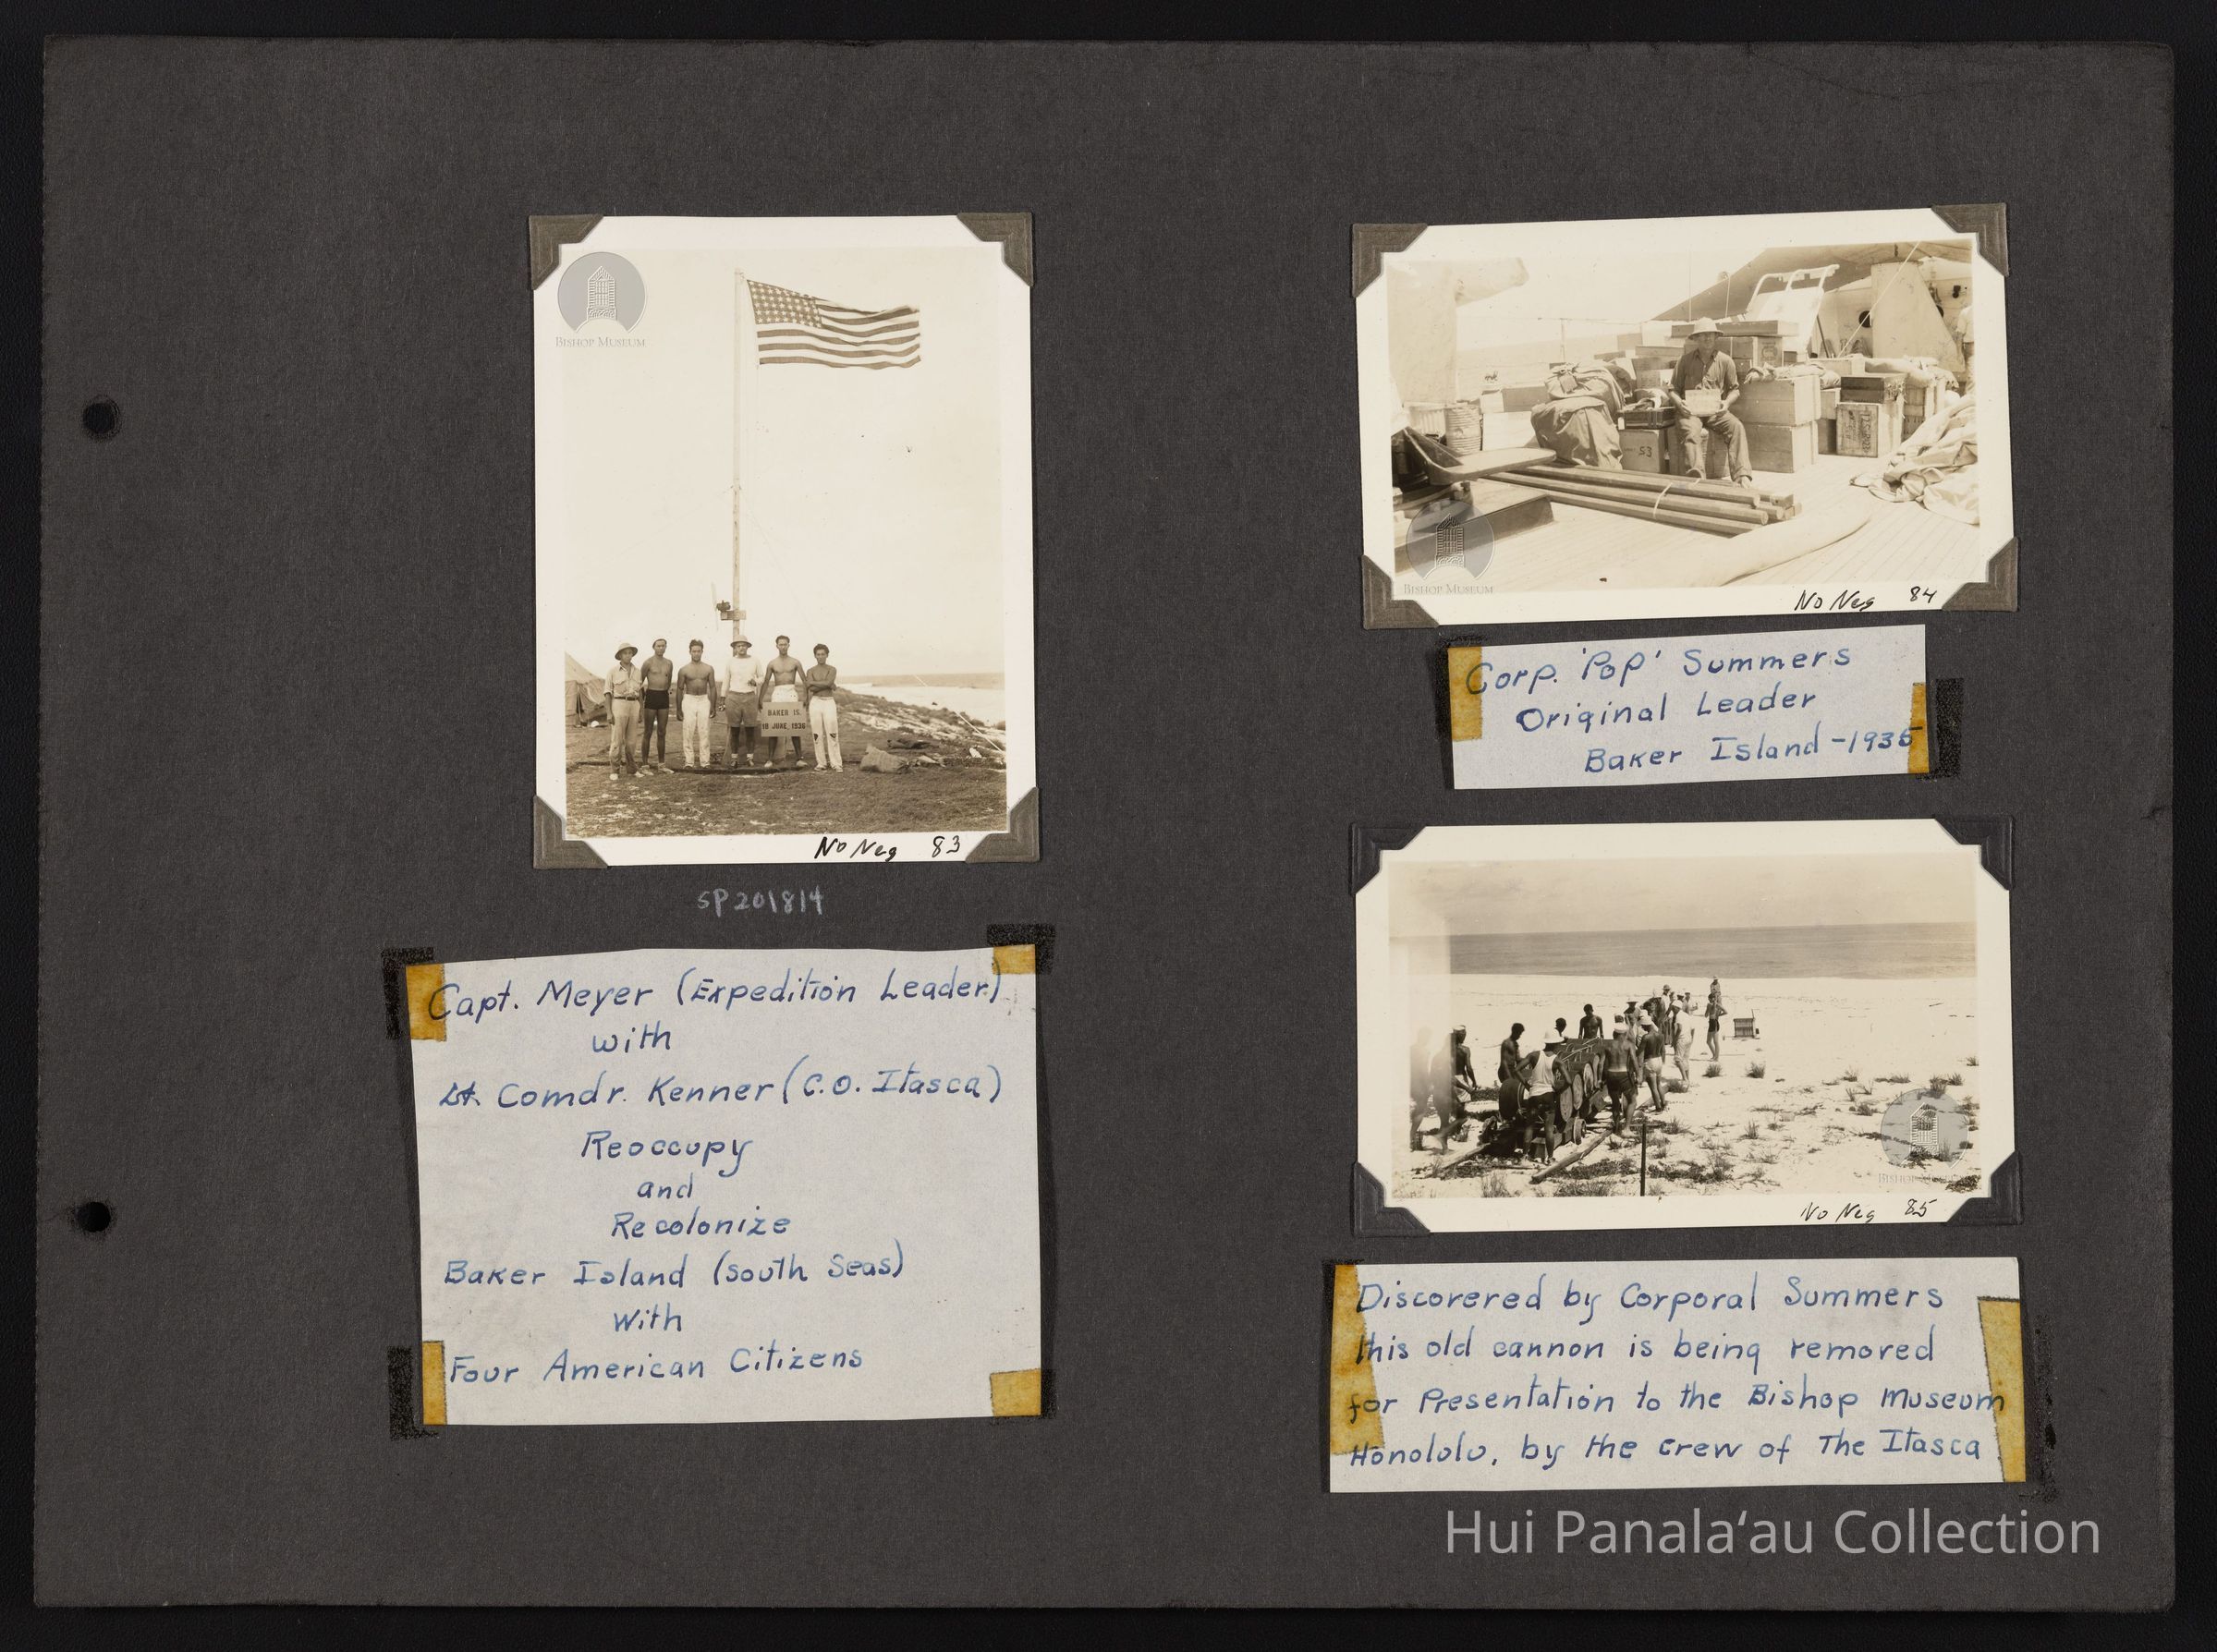 BISHOP MUSEUM
BAKER IS.
18 JUNE 1936
No Neg 83
SP201814
Capt. Meyer (Expedition Leader)
with
Lt. Comdr. Kenner (C.O. Itasca)
Reoccupy
and
Recolonize
Baker Island (South Seas)
with
Four American Citizens
53
BISHOP MUSEUM
No Neg 84
Corp. 'Pop' Summers
Original Leader
Baker Island - 1935
BISHOP MUSEUM
No Neg 85
Discorered by Corporal Summers
this old cannon is being removed
for Presentation to the Bishop Museum
Honolulu, by the crew of The Itasca
Hui Panalaʻau Collection